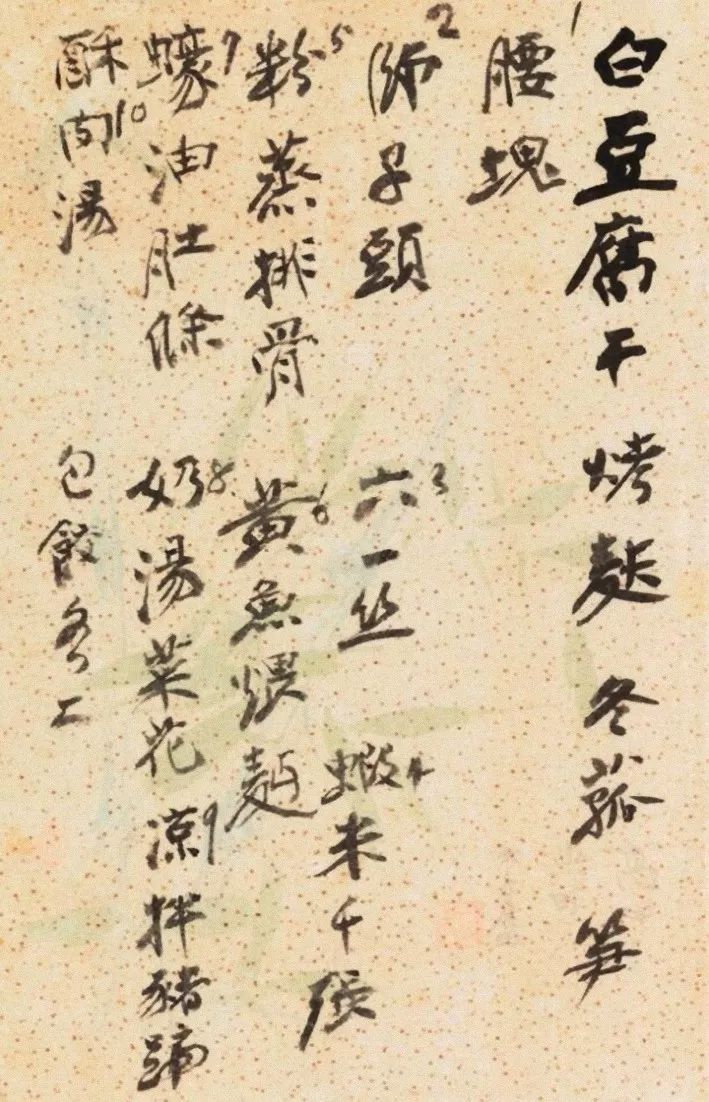 白豆腐干 烤麩 冬菰 笋
腰塊1
獅子頭2 六一丝3 蝦米千張4
粉蒸排骨5 黃魚煨麵6
蠔油肚條7 奶湯菜花8 涼拌豬蹄9
酥肉湯10 包餃